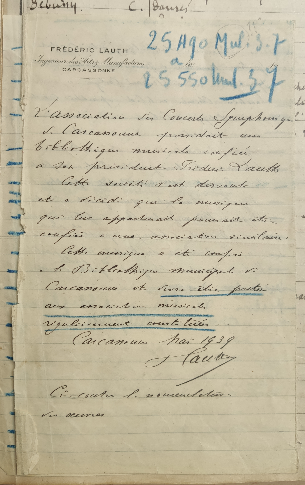 Debussy C. Danses
25 Ago Mul. 3.7
a
25 550 Mul. 37
FRÉDÉRIC LAUTH
CARCASSONNE
L'association des Concerts Symphoniques
de Carcassonne possédait une
bibliothèque musicale confiée
à son président Frédéric Lauth
Cette société s'est dissoute
et a décidé que la musique
qui lui appartenait pourrait être
confiée à une association similaire.
Cette musique a été confiée
à la Bibliothèque municipale de
Carcassonne et sera être prêtée
aux sociétés musicales
régulièrement constituées.
Carcassonne Mai 1939
F. Lauth
Ci-contre la nomenclature
des œuvres